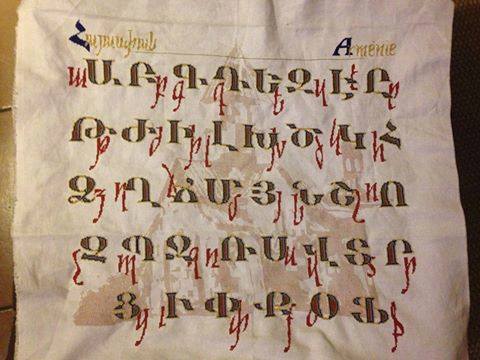 Հայաստան Arménie
աԱ Բբ Գգ Դդ Եե Զզ Էէ Ըը
Թթ Ժժ Իի Լլ Խխ Ծծ Կկ Հհ
Ձձ Ղղ Ճճ Մմ Յյ Նն Շշ Ոո
չՉ Պպ Ջջ Ռռ Սս Վվ Տտ Րր
Ցց Ււ Փփ Քք Օօ Ֆֆ